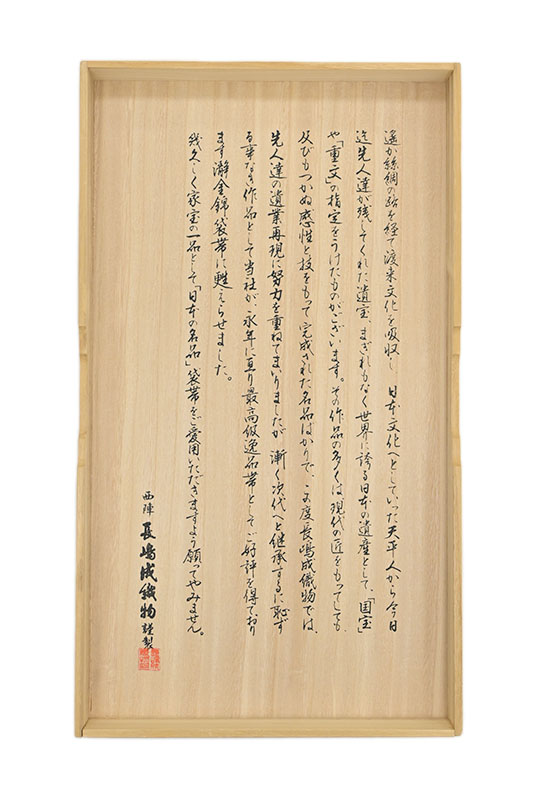 遥か絲綢の路を経て渡来文化を吸収し 日本文化へとしていった天平人から今日
迄先人達が残してくれた遺宝 まぎれもなく世界に誇る日本の遺産として、「国宝」
や「重文」の指定をうけたものがございます。その作品の多くは現代の匠をもってしても
及びもつかぬ感性と技をもって完成された名品ばかりで、この度長嶋成織物では、
先人達の遺業再現に努力を重ねてまいりましたが 漸く次代へと継承するに恥ず
る事なき作品として当社が永年に亘り最高級逸品帯としてご好評を得ており
ます瀞金錦袋帯に甦えらせました。
幾久しく家宝の一品として「日本の名品」袋帯をご愛用いただきますよう願ってやみません。
西陣 長嶋成織物 謹製